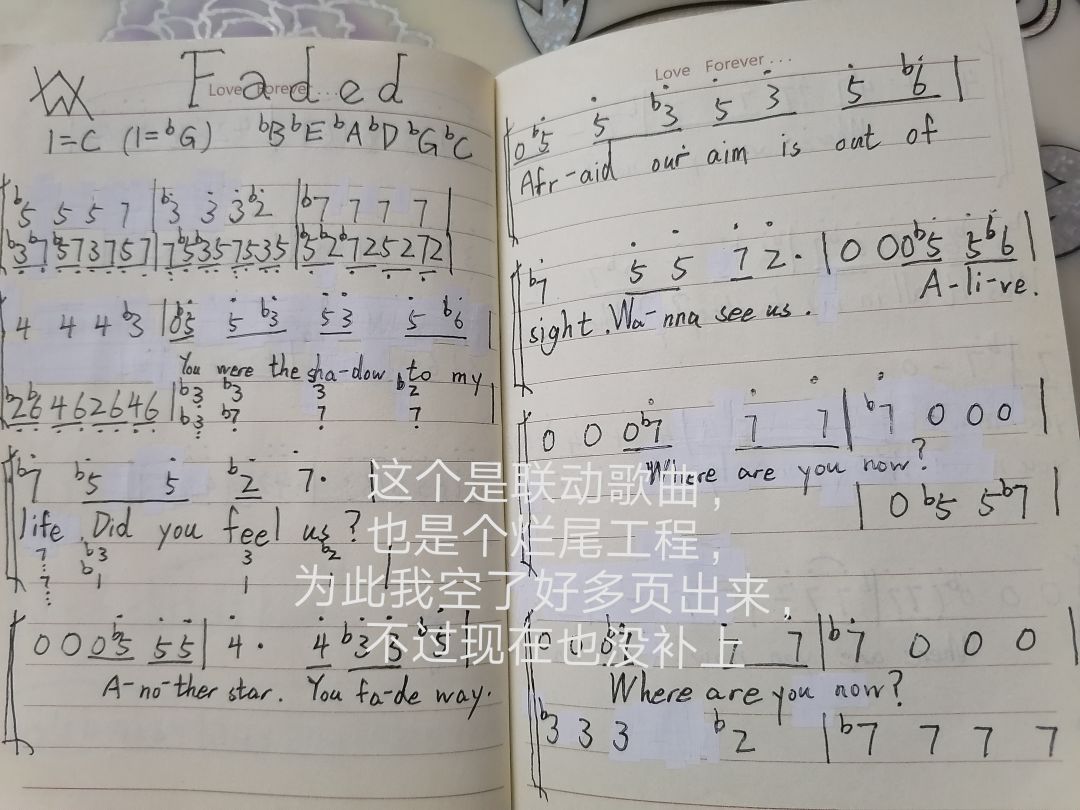 Faded
Love Forever...
1=C (1=ᵇG) ᵇBᵇEᵇAᵇDᵇGᵇC
ᵇ5 5 5 7 | ᵇ3 3 3 ᵇ2 | ᵇ7 7 7 7 |
ᵇ3ᵇ7 ᵇ5 7 3 7 5 7 | 7 ᵇ5 ᵇ3 5 7 5 3 5 | ᵇ5 ᵇ2 ᵇ7 2 5 2 7 2 |
4 4 4 ᵇ3 | 0 5 5 ᵇ3 5 3 5 ᵇ6 |
You were the sha-dow to my
ᵇ3 ᵇ3 3 ᵇ2
ᵇ2ᵇ6 4 6 2 6 4 6 | ᵇ3 ᵇ7 7 7 |
ᵇ7 ᵇ5 5 ᵇ2 7· |
life. Did you feel us?
7 ᵇ3 3 ᵇ2
7 ᵇ1 1 1
0 0 0ᵇ5 5 5 | 4· 4 ᵇ3 3 ᵇ5 |
A-no-ther star. You fa-de way.
Love Forever...
0ᵇ5 5 ᵇ3 5 3 5 ᵇ6 |
Afr-aid our aim is out of
ᵇ7 5 5 7 2· | 0 0 0ᵇ5 5ᵇ6 |
sight. Wa-nna see us. A-li-ve.
0 0 0ᵇ7 7 7 | ᵇ7 0 0 0 |
Where are you now?
| 0 ᵇ5 5 ᵇ7 |
0 0 0ᵇ7 7 7 | ᵇ7 0 0 0 |
Where are you now?
ᵇ3 3 3 ᵇ2 | ᵇ7 7 7 7
这个是联动歌曲，
也是个烂尾工程，
为此我空了好多页出来，
不过现在也没补上